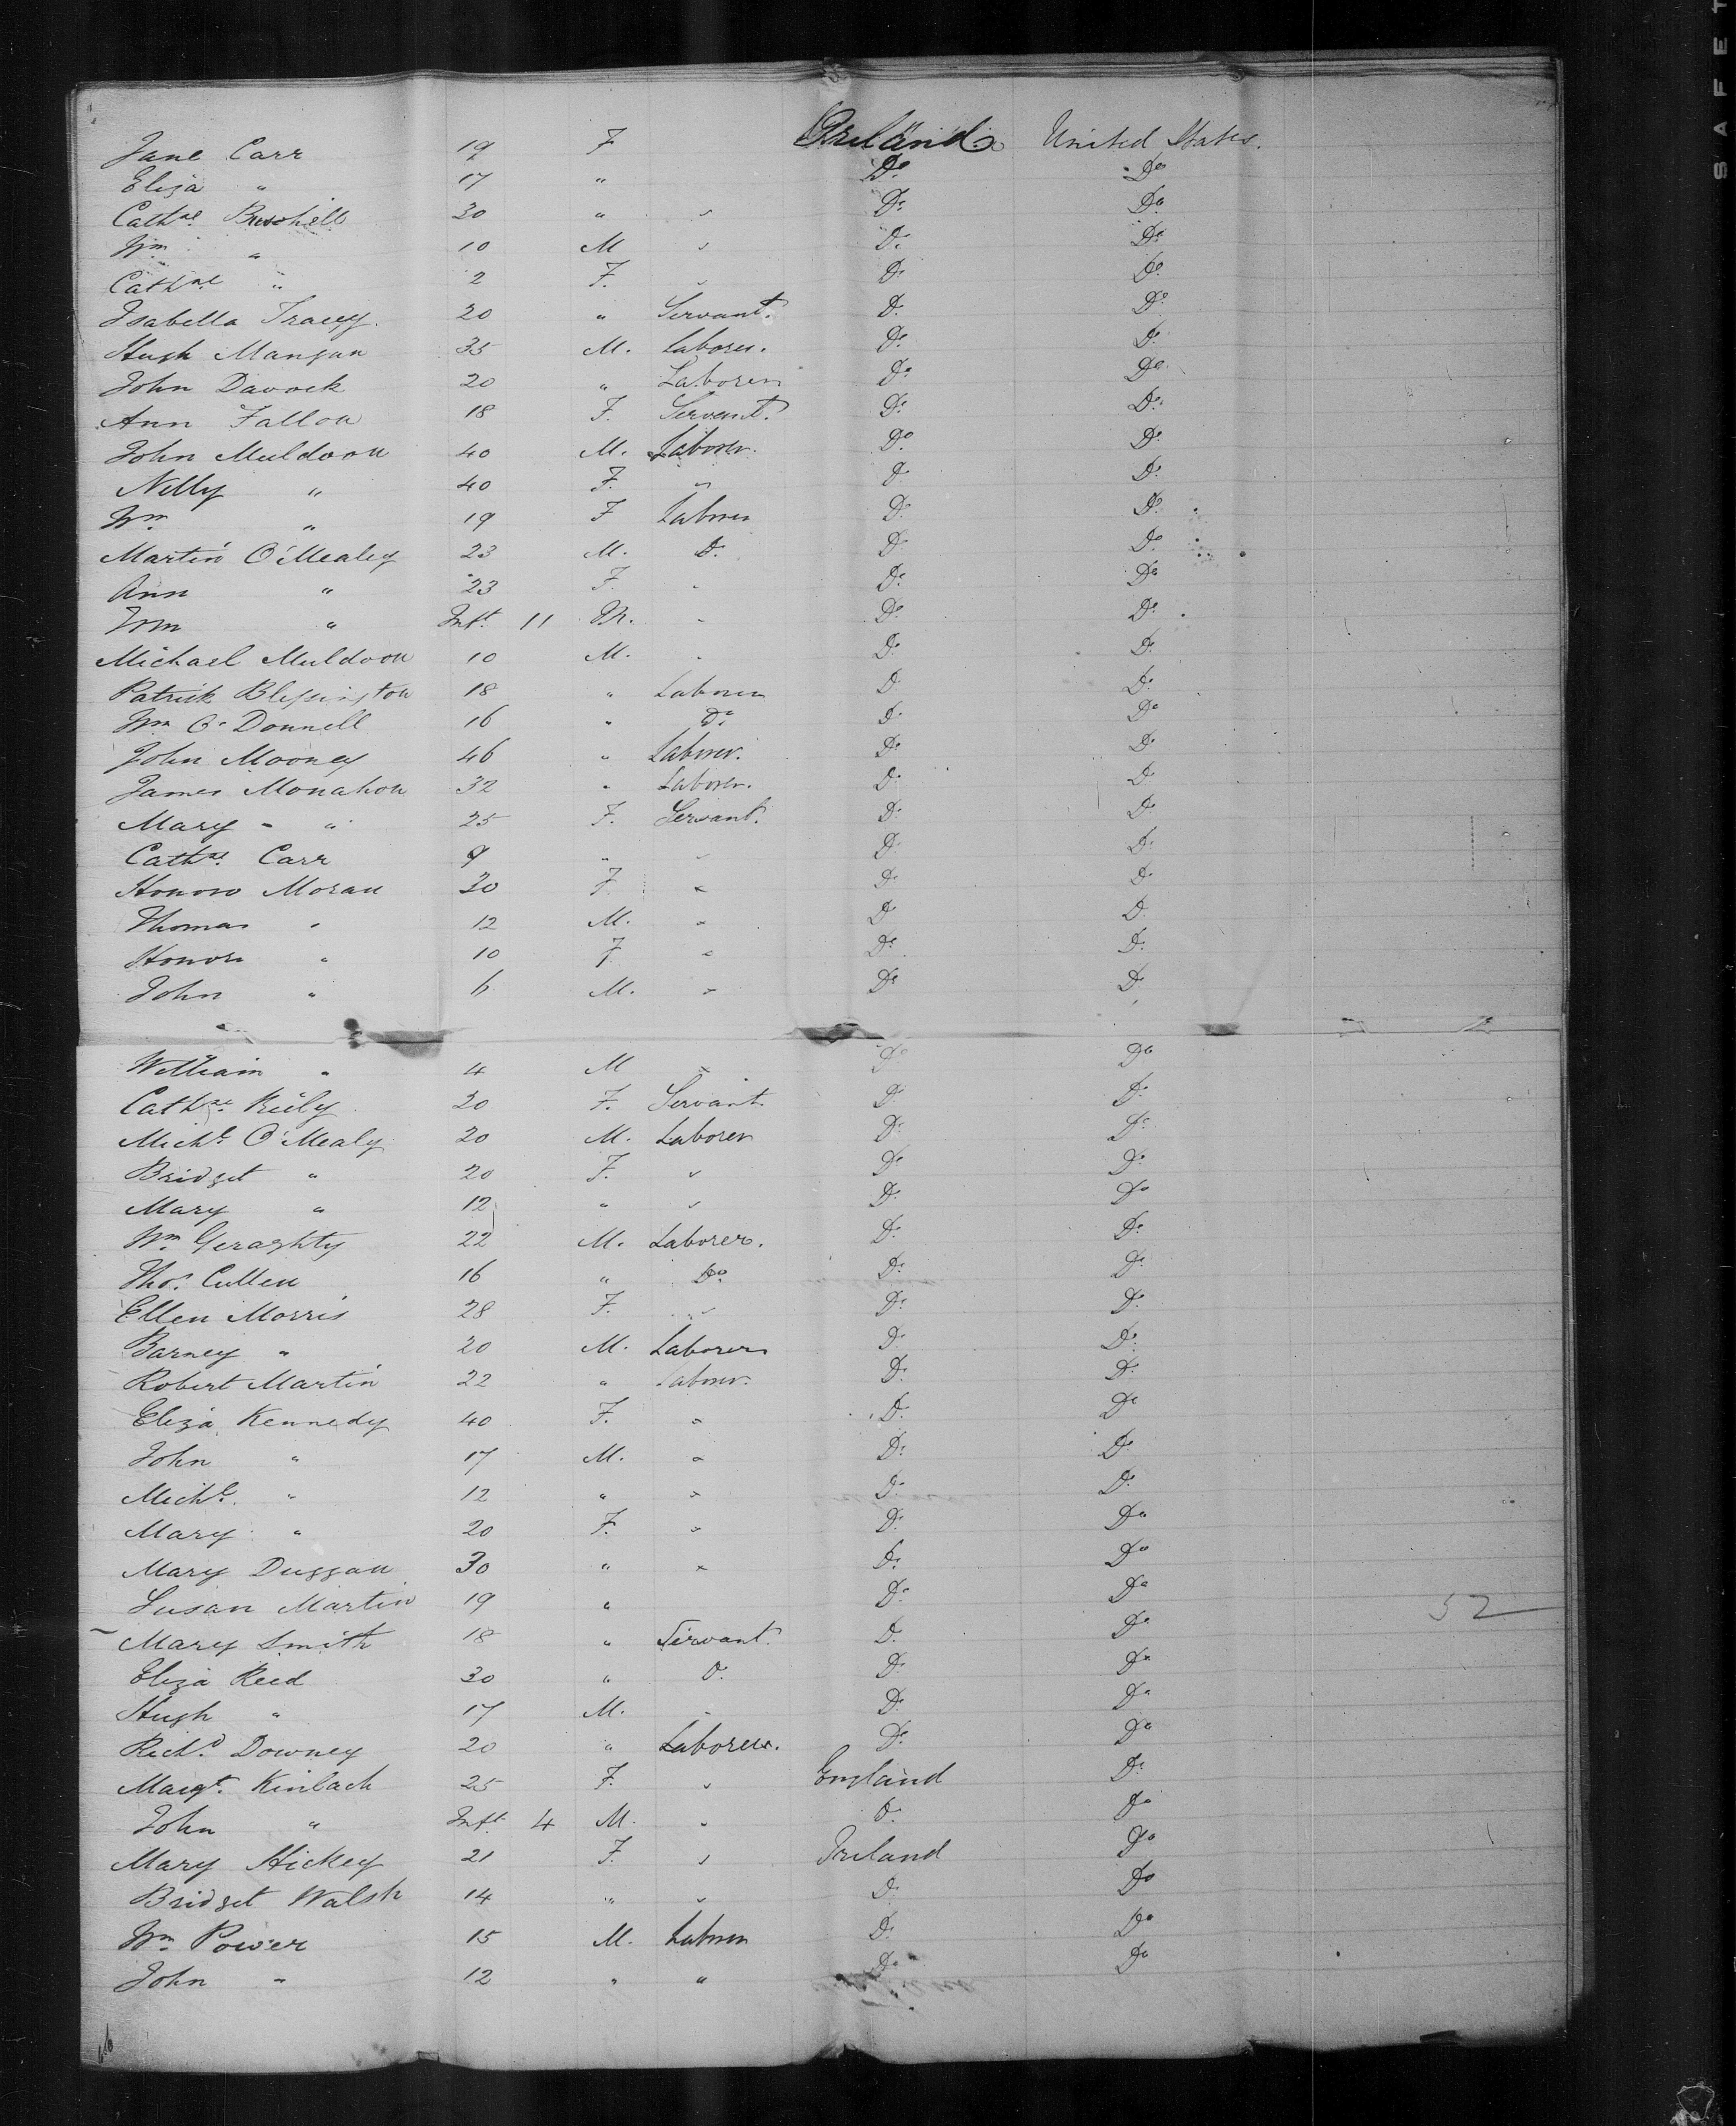 Jane Carr 19 F Ireland United States.
Eliza " 17 " Do Do
Cathne Buschell 30 " " Do Do
Wm " 10 M " Do Do
Cathne " 2 F. " Do Do
Isabella Tracey. 20 " Servant. Do Do
Hugh Mangan 35 M. Laborer. Do Do
John Davock 20 " Laborer Do Do
Ann Fallon 18 F. Servant. Do Do
John Muldoon 40 M. Laborer. Do Do
Nelly " 40 F. " Do Do
Wm " 19 F Laborer Do Do
Martin O'Mealey 23 M. Do Do Do
Ann " 23 F. " Do Do
" Inft. 11 M. " Do Do
Michael Muldoon 10 M. " Do Do
Patrick Blessington 18 " Laborer Do Do
Wm O'Donnell 16 " Do Do Do
John Mooney 46 " Laborer. Do Do
James Monahon 32 " Laborer. Do Do
Mary - " 25 F. Servant. Do Do
Cathne Carr 9 " " Do Do
Honora Moran 30 F. " Do Do
Thomas " 12 M. " Do Do
Honora " 10 F " Do Do
John " 6 M. " Do Do
William " 4 M " Do Do
Cathne Riely 20 F. Servant. Do Do
Michl O'Mealy 20 M. Laborer Do Do
Bridget " 20 F. " Do Do
Mary " 12 " " Do Do
Wm Geraghty 22 M. Laborer. Do Do
Thos Cullen 16 " Do Do Do
Ellen Morris 28 F. " Do Do
Barney " 20 M. Laborer Do Do
Robert Martin 22 " Laborer. Do Do
Eliza Kennedy 40 F. " Do Do
John " 17 M. " Do Do
Michl. " 12 " " Do Do
Mary " 20 F. " Do Do
Mary Duggan 30 " " Do Do
Susan Martin 19 " Do Do 52
Mary Smith 18 " Servant. Do Do
Eliza Reed 30 " Do Do Do
Hugh " 17 M. " Do Do
Richd Downey 20 " Laborer. Do Do
Margt. Kinlach 25 F. " England Do
John " Inft. 4 M. " Do Do
Mary Hickey 21 F. " Ireland Do
Bridget Walsh 14 " " Do Do
Wm Power 15 M. Laborer Do Do
John " 12 " " Do Do
SAFET